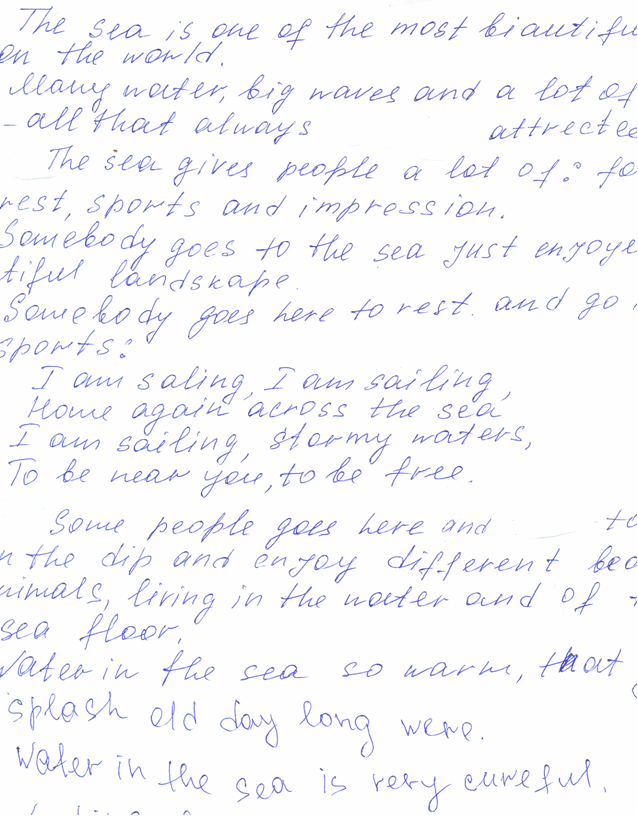 The sea is one of the most biautifu
on the world.
Many water, big waves and a lot of
- all that always attrectee
The sea gives people a lot of: fo
rest, sports and impression.
Somebody goes to the sea just enjoye
tiful landskape.
Somebody goes here to rest. and go
sports:
I am saling, I am sailing,
Home again across the sea
I am sailing, stormy waters,
To be near you, to be free.
Some people goes here and to
n the dip and enjoy different bea
nimals, living in the water and of
sea floor.
Water in the sea so warm, that
splash old day long were.
Water in the sea is very cureful.